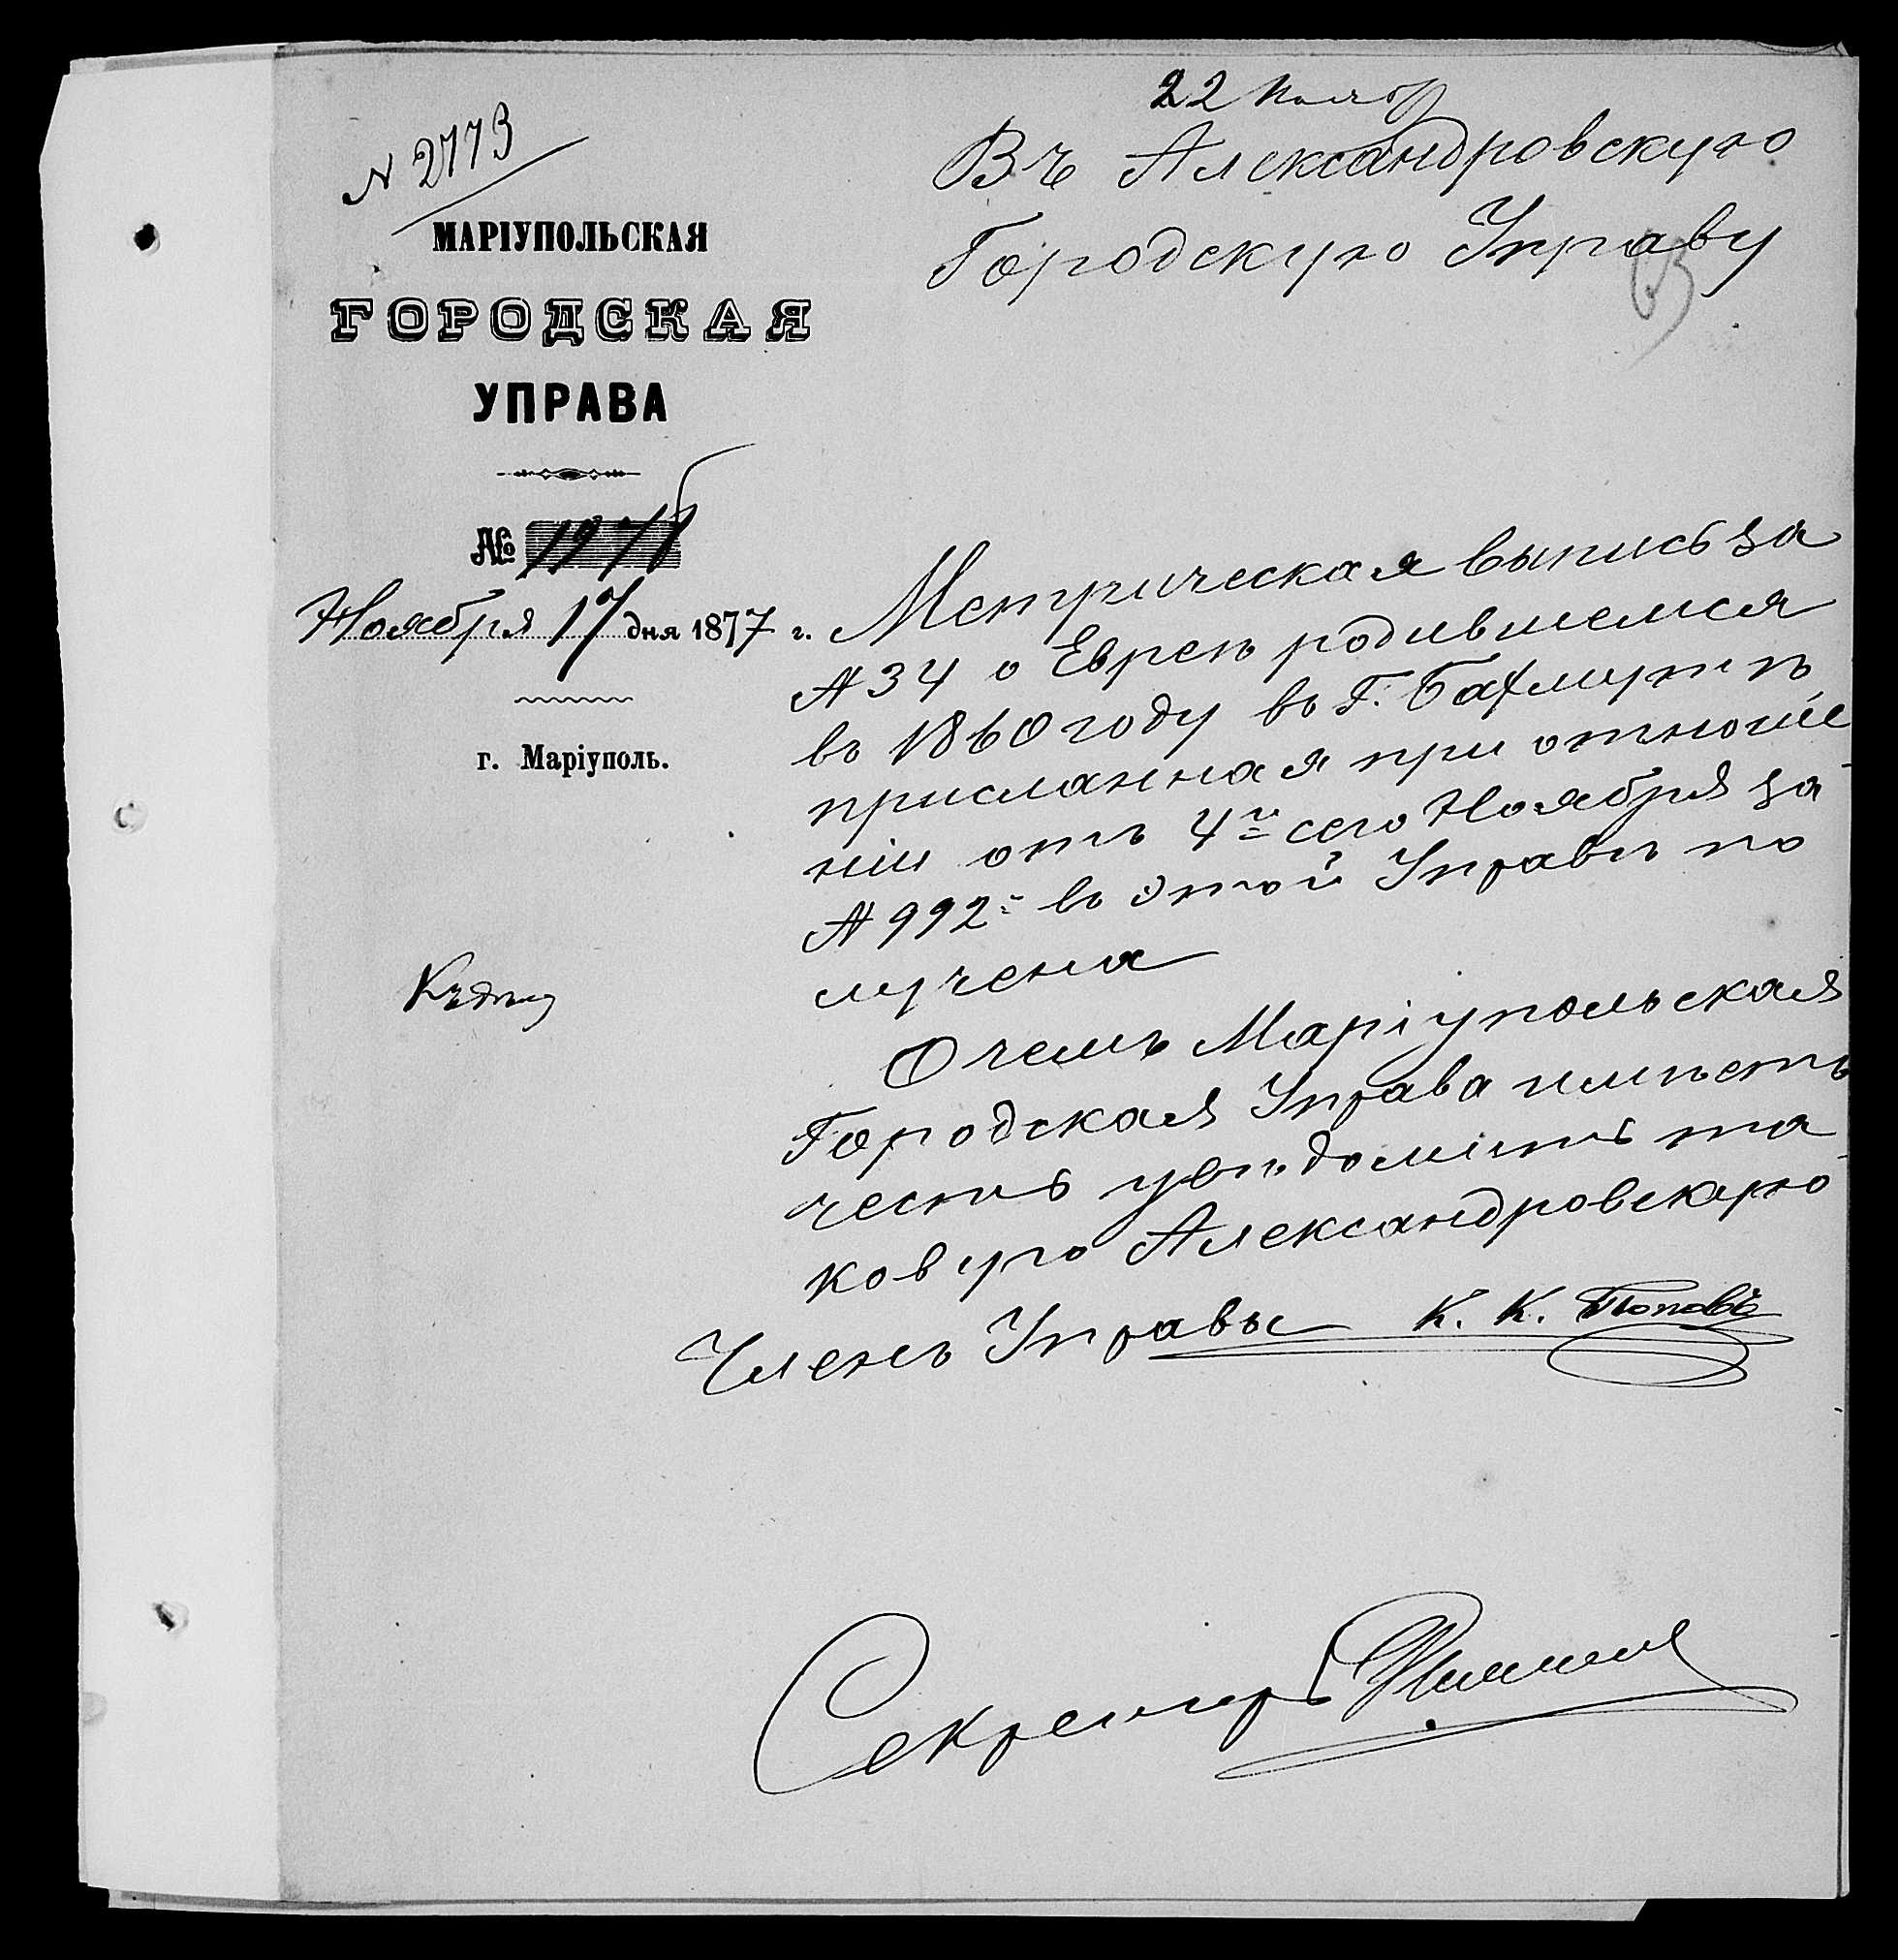 22 Ноябр
Въ Александровскую
Городскую Управу
N 2773
МАРІУПОЛЬСКАЯ
ГОРОДСКАЯ
УПРАВА
№
Ноября 17 дня 1877 г.
г. Маріуполь.
Метрическая выпись за
N 34 о Евреѣ родившемся
въ 1860 году въ Г. Бахмутѣ
присланная при отноше
ніи отъ 4го сего Ноября за
N 992 = въ этой Управѣ по
лучена
О чемъ Маріупольская
Городская Управа имѣетъ
честь увѣдомить та
ковую Александровскую
Къ дѣлу
Членъ Управы К. К. Поповъ
Секретарь